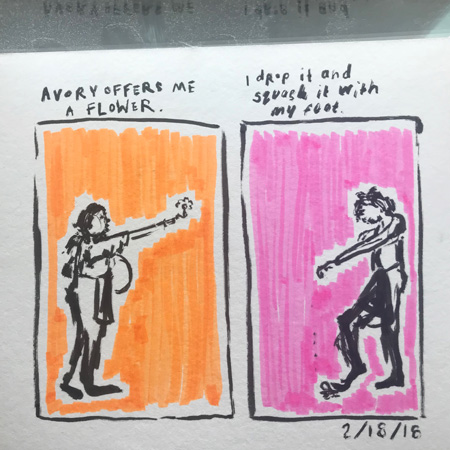 AVORY OFFERS ME
A FLOWER.
I drop it and
squash it with
my foot.
2/18/18